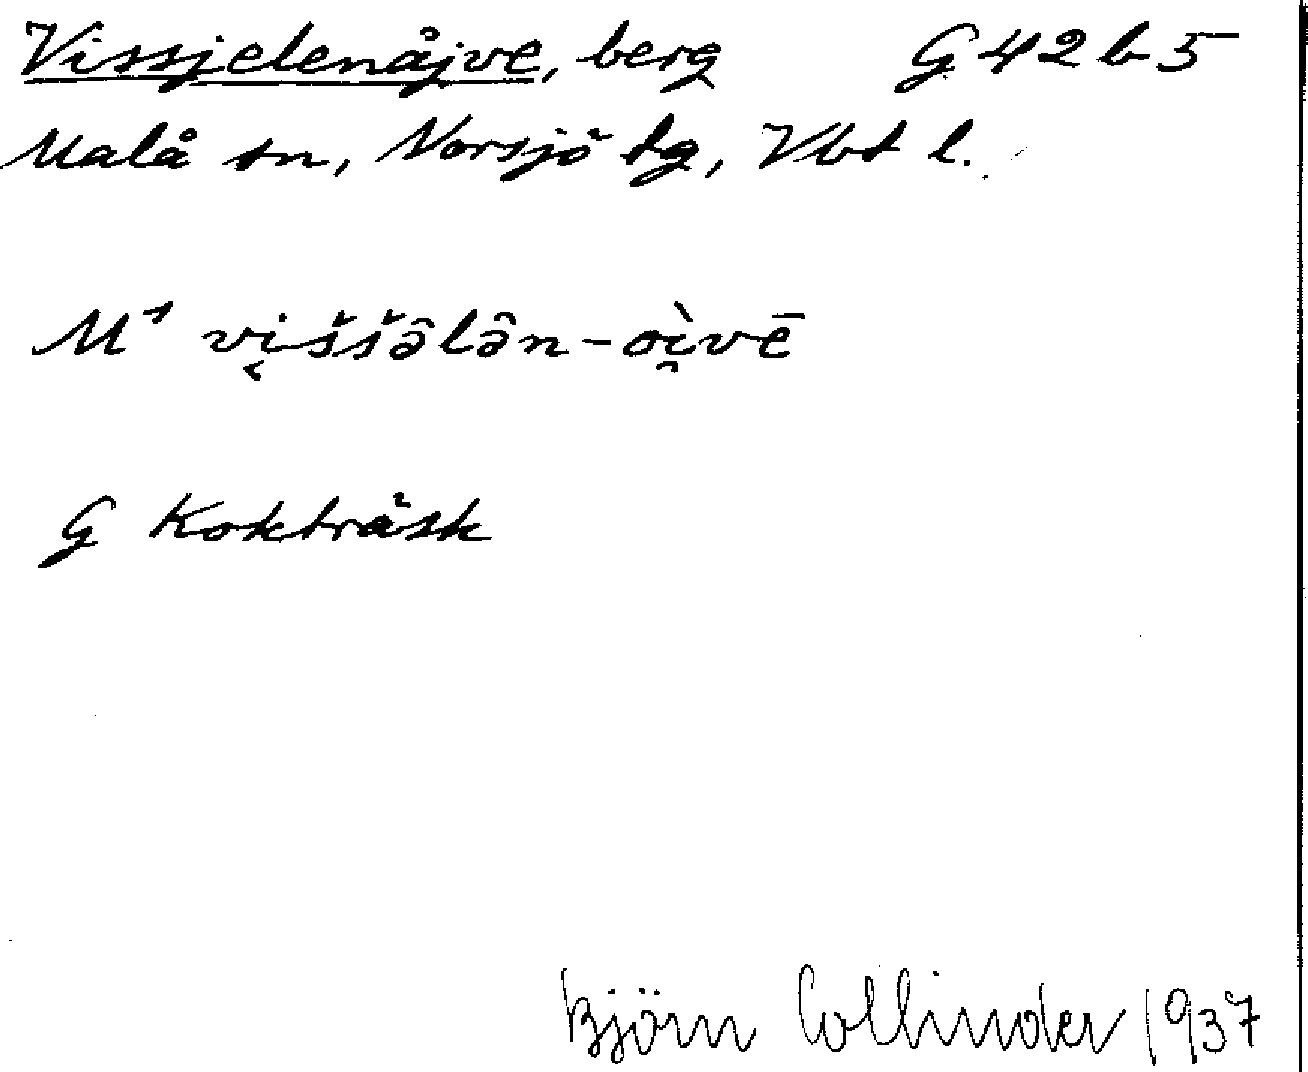 Vissjelenåjve, berg G 42 b 5
Malå sn, Norsjö tg, Vbt l.
M¹ vi̬ššâlân-oì̯vē
G Kokträsk
Björn Collinder 1937